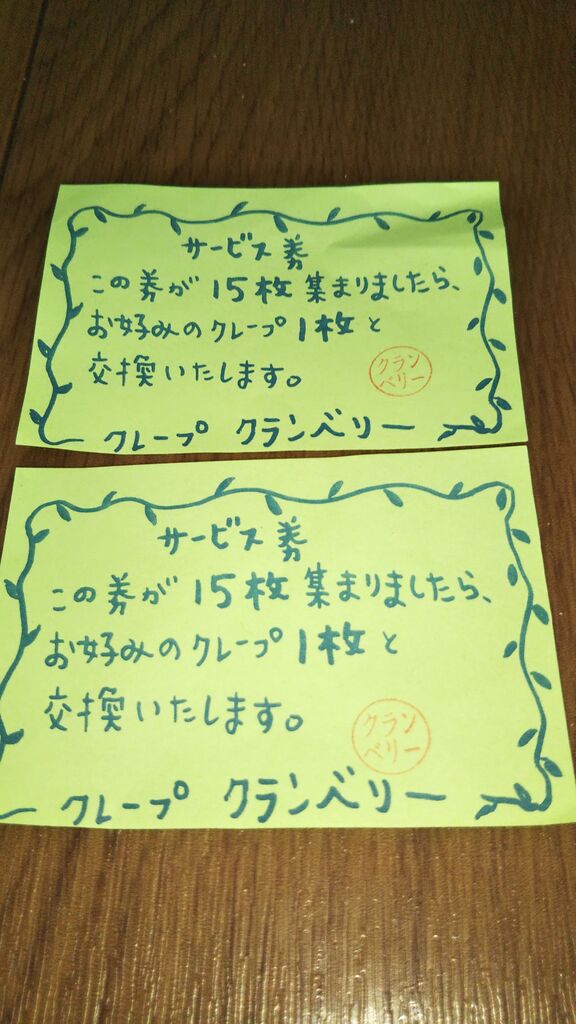 サービス券
この券が15枚集まりましたら、
お好みのクレープ1枚と
交換いたします。
クラン
ベリー
クレープ クランベリー
サービス券
この券が15枚集まりましたら、
お好みのクレープ1枚と
交換いたします。
クラン
ベリー
クレープ クランベリー